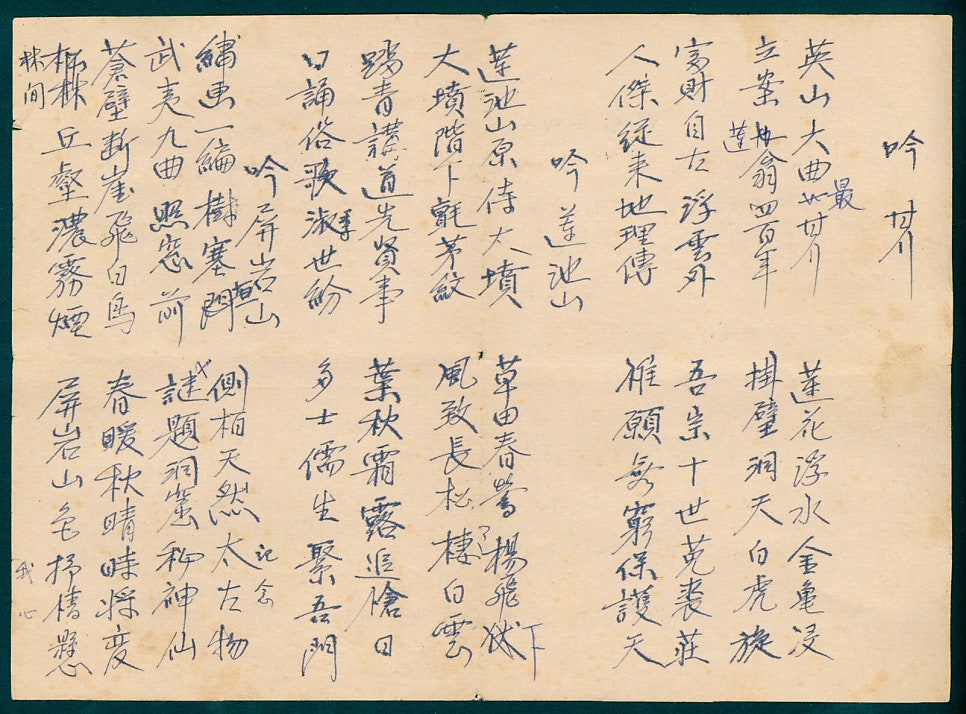 吟 甘川
英山大曲最甘川 蓮花浮水金亀浸
立案蓮翁四百年 掛壁洞天白虎旋
富財自古浮雲外 吾宗十世菟裘莊
人傑從来地理傳 祈願無窮保護天
吟 蓮池山
蓮池山原侍大墳 草田春鶯楊飛下
大墳階下氈茅紋 風致長松棲白雲
踏青講道先賢事 葉秋霜露追愴日
日誦俗歌淑世紛 多士儒生聚吾門
吟 屏岩山
繡画一編樹塞門 側柏天然太古物 記念
武夷九曲照窓前 謎題洞窟秘神仙
蒼壁断崖飛白鳥 春暖秋晴時将変
林丘壑濃霧煙 屏岩山色抒情懸
林间 我心